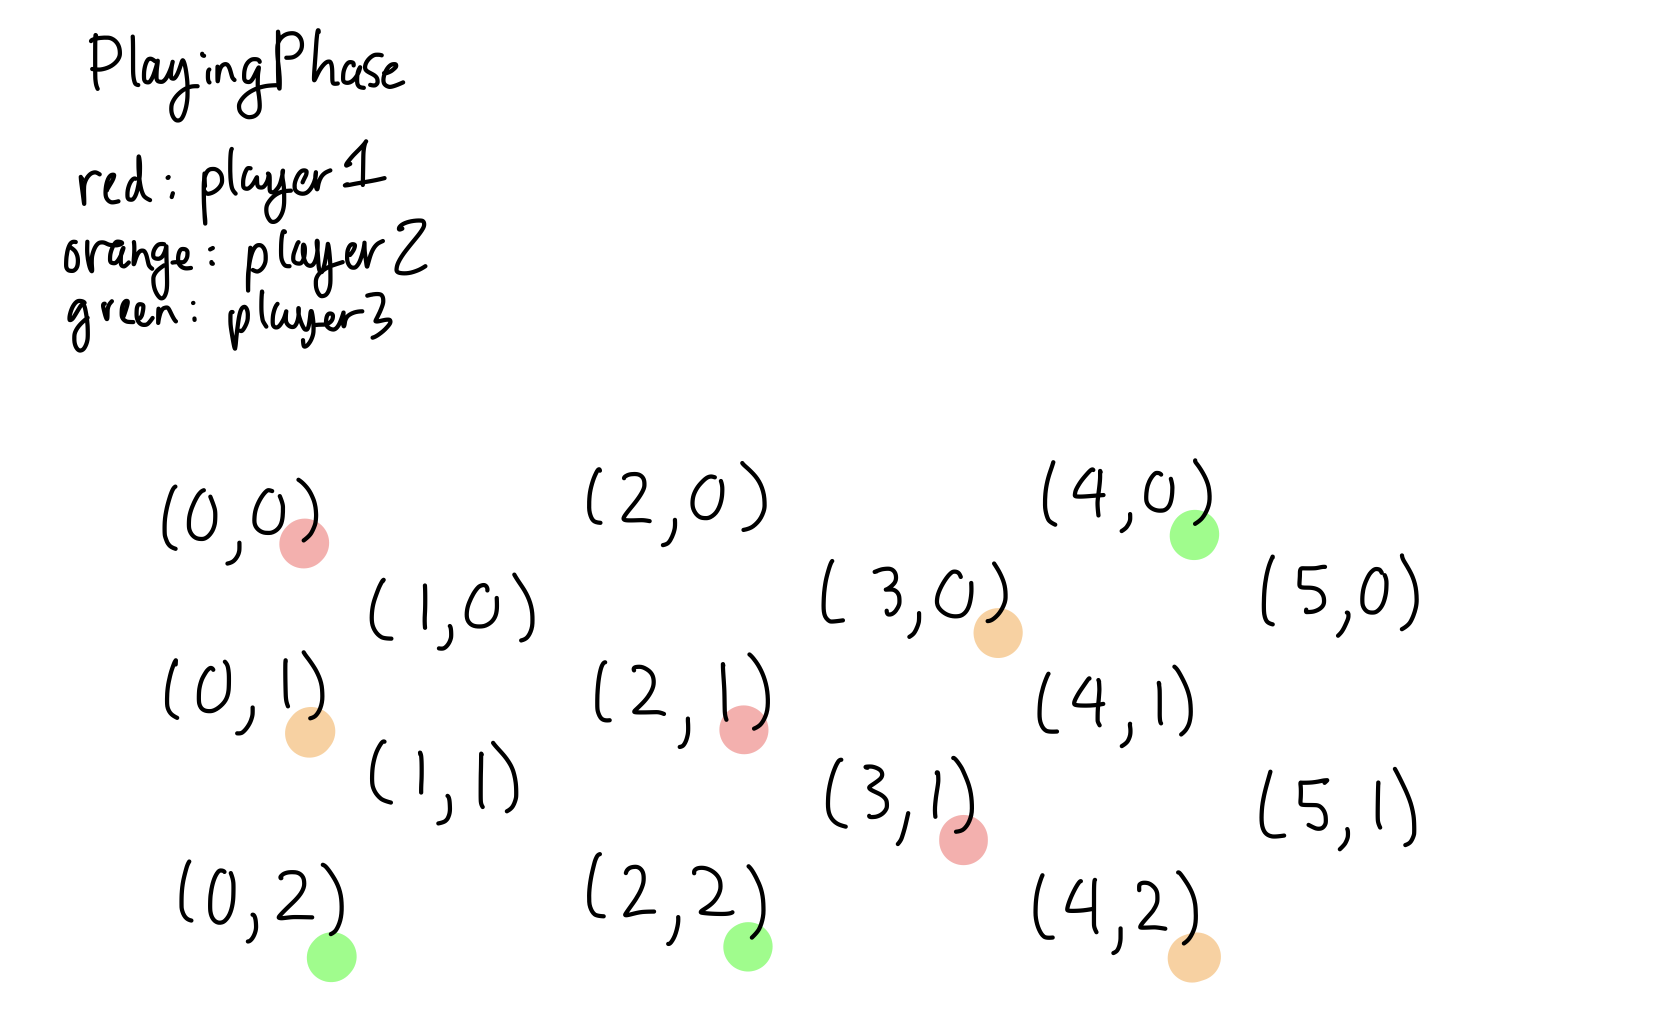 PlayingPhase
red: player1
orange: player2
green: player3
(0,0) (2,0) (4,0)
(1,0) (3,0) (5,0)
(0,1) (2,1) (4,1)
(1,1) (3,1) (5,1)
(0,2) (2,2) (4,2)